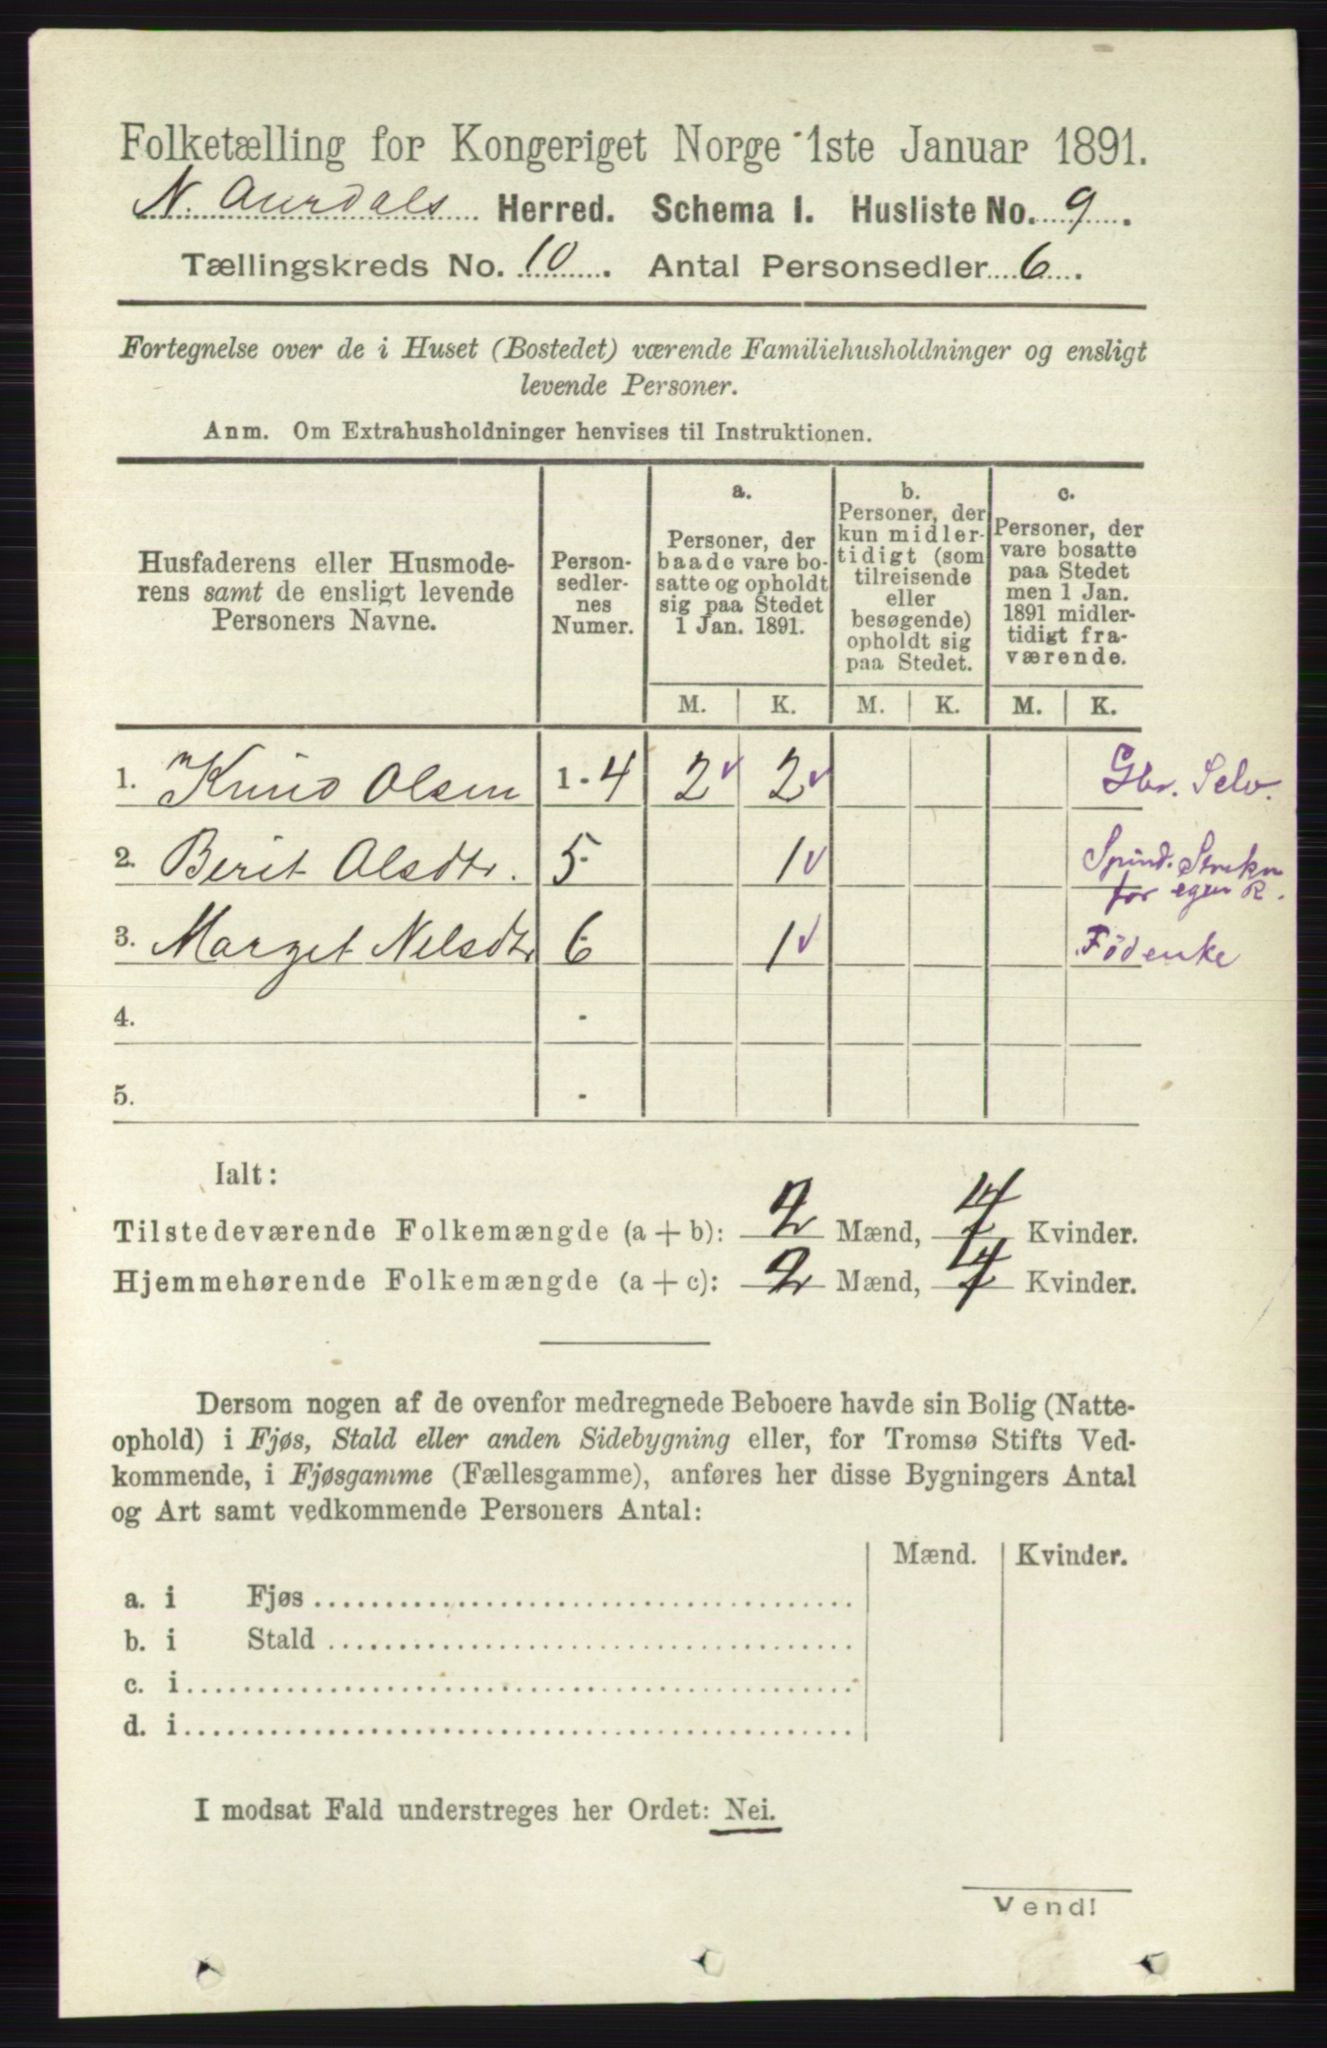 Folketælling for Kongeriget Norge 1ste Januar 1891.
N. Aurdals Herred. Schema I. Husliste No. 9.
Tællingskreds No. 10. Antal Personsedler 6.
Fortegnelse over de i Huset (Bostedet) værende Familiehusholdninger og ensligt
levende Personer.
Anm. Om Extrahusholdninger henvises til Instruktionen.
Husfaderens eller Husmode-
rens samt de ensligt levende
Personers Navne.
Person-
sedler-
nes
Numer.
a.
Personer, der
baade vare bo-
satte og opholdt
sig paa Stedet
1 Jan. 1891.
b.
Personer, der
kun midler-
tidigt (som
tilreisende
eller
besøgende)
opholdt sig
paa Stedet.
c.
Personer, der
vare bosatte
paa Stedet
men 1 Jan.
1891 midler-
tidigt fra-
værende.
M. K. M. K. M. K.
1. Knud Olsen 1 - 4 2 2 Gbr. Selv.
2. Berit Olsdtr. 5 - 1 Spind. Strikn
for egen R.
3. Marget Nilsdtr 6 - 1 Födenke
4. -
5. -
Ialt:
Tilstedeværende Folkemængde (a + b): 2 Mænd, 4 Kvinder.
Hjemmehørende Folkemængde (a + c): 2 Mænd, 4 Kvinder.
Dersom nogen af de ovenfor medregnede Beboere havde sin Bolig (Natte-
ophold) i Fjøs, Stald eller anden Sidebygning eller, for Tromsø Stifts Ved-
kommende, i Fjøsgamme (Fællesgamme), anføres her disse Bygningers Antal
og Art samt vedkommende Personers Antal:
Mænd. Kvinder.
a. i Fjøs
b. i Stald
c. i
d. i
I modsat Fald understreges her Ordet: Nei.
Vend!